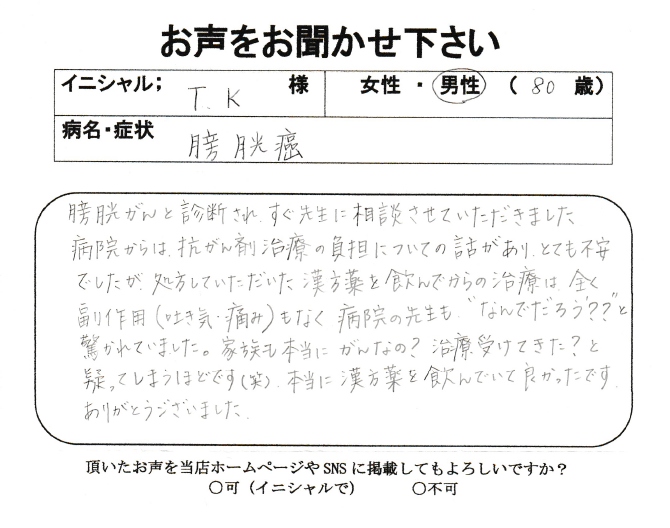 お声をお聞かせ下さい
イニシャル； T.K 様 女性 ・ 男性 （ 80 歳）
病名・症状 膀胱癌
膀胱がんと診断され、すぐ先生に相談させていただきました
病院からは、抗がん剤治療の負担についての話があり、とても不安
でしたが、処方していただいた漢方薬を飲んでからの治療は、全く
副作用(吐き気・痛み)もなく 病院の先生も、“なんでだろう??”と
驚かれていました。家族も本当に がんなの? 治療受けてきた?と
疑ってしまうほどです(笑)。本当に漢方薬を飲んでいて良かったです。
ありがとうございました。
頂いたお声を当店ホームページや SNS に掲載してもよろしいですか？
○可（イニシャルで） ○不可